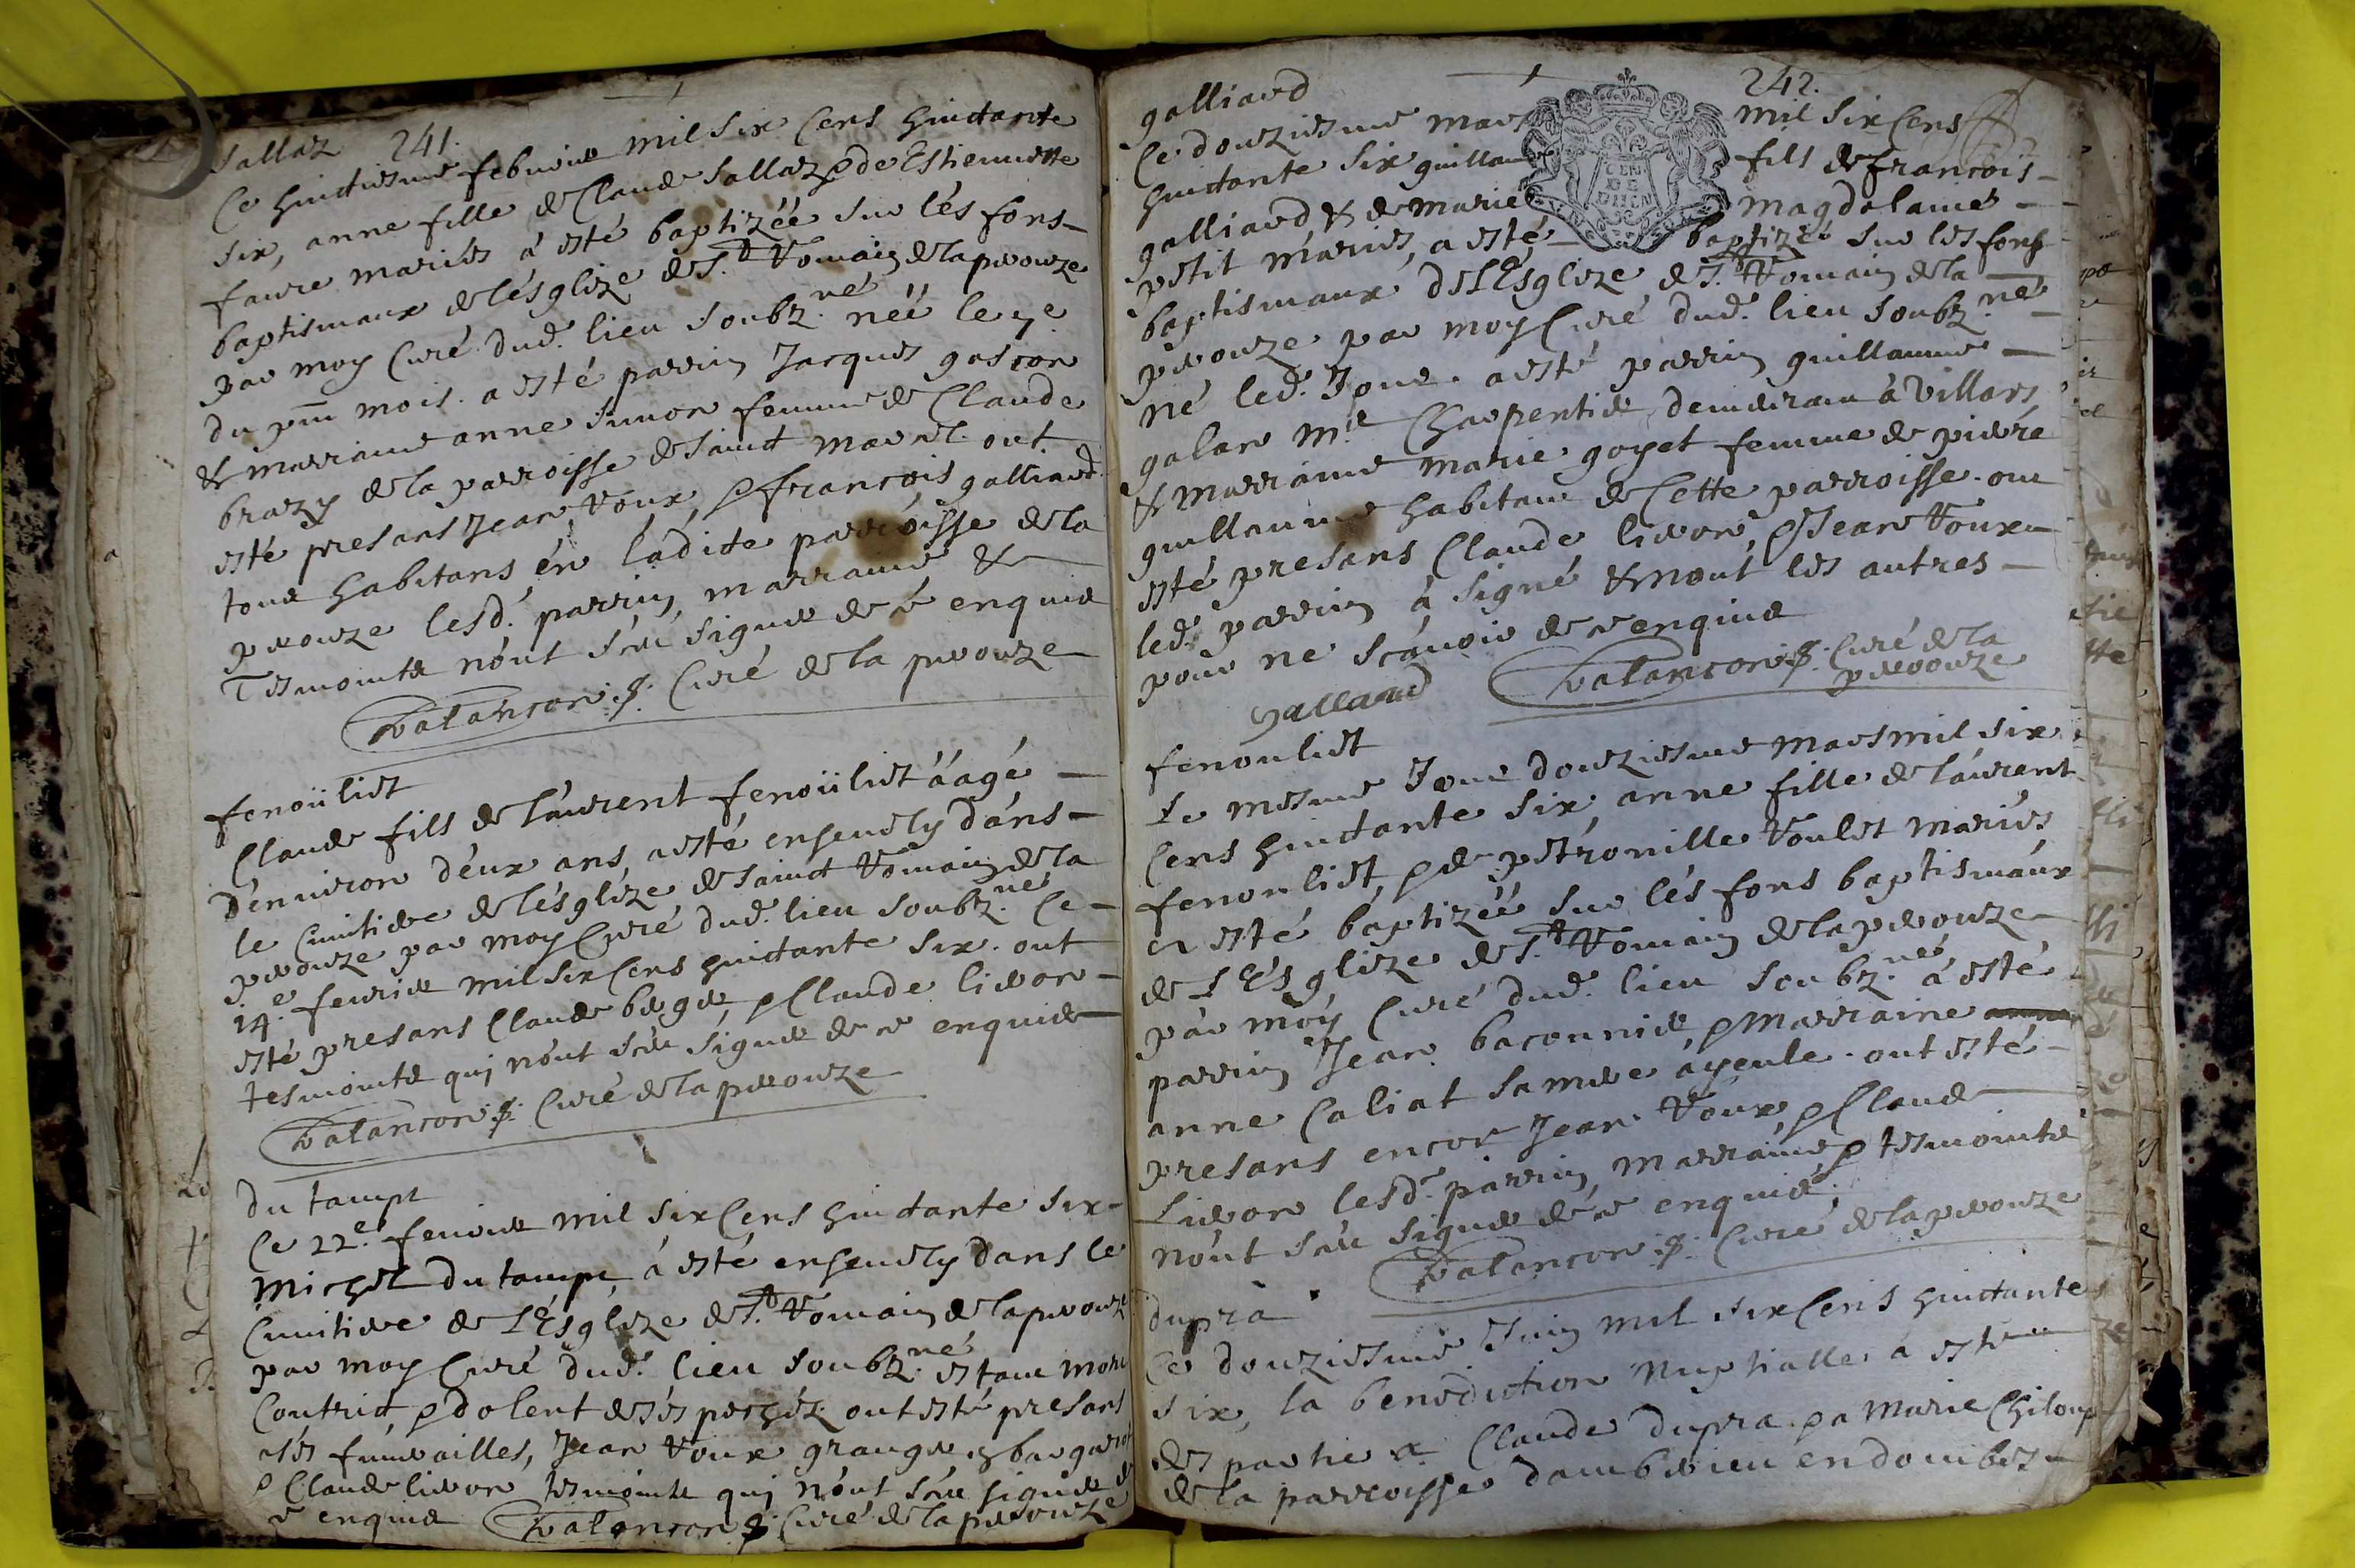 Sallaz 241.
Ce huictiesme febvrier mil six cens huictante
six, anne fille de Claude Sallaz & de Estiennette
faure mariés à esté baptizéé sur lés fons
baptismaux de l'ésglize de St. Romain de la perouze
par moy Curé dud. lieu soubz.né néé le 7e
du pnt mois. a esté parrin Jacques gascon
& marraine anne Simon femme de Claude
brazy de la parroisse de saint marcel. ont
esté presans Jean Roux, & francois galliard
tous habitans én ladite parroisse de la
perouze lesd. parrin, marraine &
Tesmoints n'ont sceu signer de ce enquis
Balancon p. Curé de la perouze
fenoüliet
Claude fils de laurent fenoüliet áagé
d'énviron deux ans, a esté ensevely dáns
le Cimitiere de l'ésglize de saint Romain de la
perouze par moy Curé dud. lieu soubz.né Ce
14.e fevrier mil six cens huictante six. ont
esté presans Claude berger, & Claude lieron
tesmoints qui n'ont sceu signer de ce enquis
Balancon p. Curé de la perouze
du tampt
Ce 22.e fevrier mil six Cens huictante six
Michel du tampt, á esté ensevely dans le
Cimitiere de L'Esglize de St. Romain de la perouze
par moy Curé dud. lieu soubz.né estant mort
Contrict, & dolent de sés pechéz ont esté presans
a sés funerailles, Jean Roux granger
& Claude lieron tesmoints qui n'ont sceu signer de
ce enquis Balancon p. Curé de la perouze
galliard 242.
Ce douziesme mars mil six Cens
huictante six guillaume fils de francois
galliard & de marie magdelaine
petit mariés, a esté baptizé sur les fons
baptismaux de L'Esglize de St. Romain de la
perouze par moy Curé dud. lieu soubz.né
né led. Jour. a esté parrin guillaume
galan Charpentier demeurant à Villars
& marraine marie goyet femme de pierre
guillaume habitant de Cette parroisse. ont
esté presans Claude lieron, & Jean Roux
led. parrin á signé & nont les autres
pour ne scávoir de ce enquis
galland Balancon p. Curé de la
perouze
fenouliet
Le mesme Jour douziesme mars mil six
Cens huictante six, anne fille de laurent
fenouliet, & de petronille Roulet mariés
a esté baptizéé sur lés fons baptismaux
de L'Esglize de St. Romain de la perouze
pár móy Curé dud. lieu soubz.né á esté
parrin Jean baconnier, & Marraine
anne Caliat sa mere ayeule. ont esté
presans encor Jean Roux, & Claude
Lieron lesd. parrin, marraine & tesmoints
n'ont sceu signer de ce enquis.
Balancon p. Curé de la perouze
dupra
Ce douziesme Juin mil six Cens huictante
six, la benediction Nuptialle a esté
Claude dupra & a Marie Chiloup
de la parroisse d'amberieu en dombes